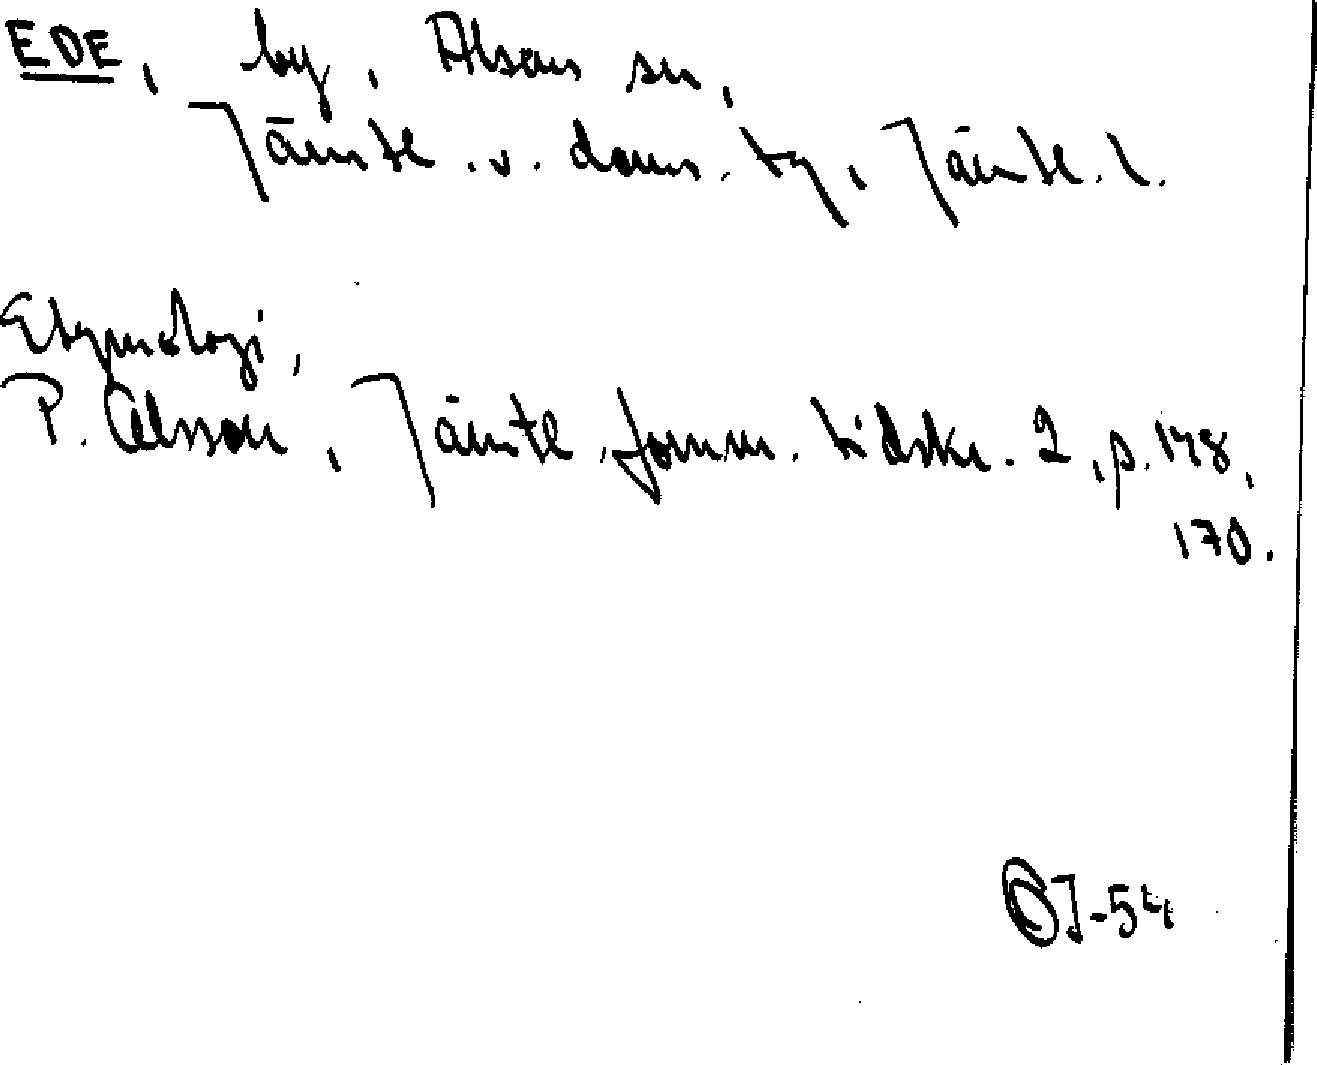 EDE, by, Alsens sn,
Jämtl. v. doms. tg, Jämtl. l.
Etymologi,
P. Olsson, Jämtl. fornm. tidskr. 2, p. 148,
170.
-54